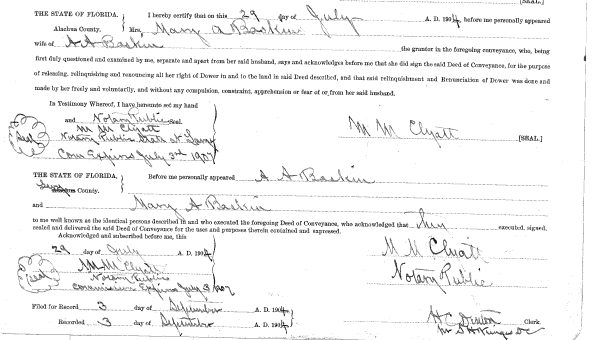 [SEAL.]
THE STATE OF FLORIDA. I hereby certify that on this 29 day of July A. D. 1904 before me personally appeared
Alachua County. Mrs. Mary A Baskin
wife of A A Baskin the grantor in the foregoing conveyance, who, being
first duly questioned and examined by me, separate and apart from her said husband, says and acknowledges before me that she did sign the said Deed of Conveyance, for the purpose
of releasing, relinquishing and renouncing all her right of Dower in and to the land in said Deed described, and that said relinquishment and Renunciation of Dower was done and
made by her freely and voluntarily, and without any compulsion, constraint, apprehension or fear of or from her said husband.
In Testimony Whereof, I have hereunto set my hand
and Notary Public Seal.
Seal M M Clyatt M M Clyatt [SEAL.]
Notary Public State at Large
Com Expires July 3rd 1907
THE STATE OF FLORIDA. Before me personally appeared A A Baskin
Levy Alachua County.
and Mary A Baskin
to me well known as the identical persons described in and who executed the foregoing Deed of Conveyance, who acknowledged that they executed, signed,
sealed and delivered the said Deed of Conveyance for the uses and purposes therein contained and expressed.
Acknowledged and subscribed before me, this
29 day of July A. D. 1904 M M Clyatt
Seal M M Clyatt Notary Public
Notary Public
Commission Expires July 3 1907
Filed for Record 3 day of September A. D. 1904
Recorded 3 day of September A. D. 1904 H C Denton Clerk.